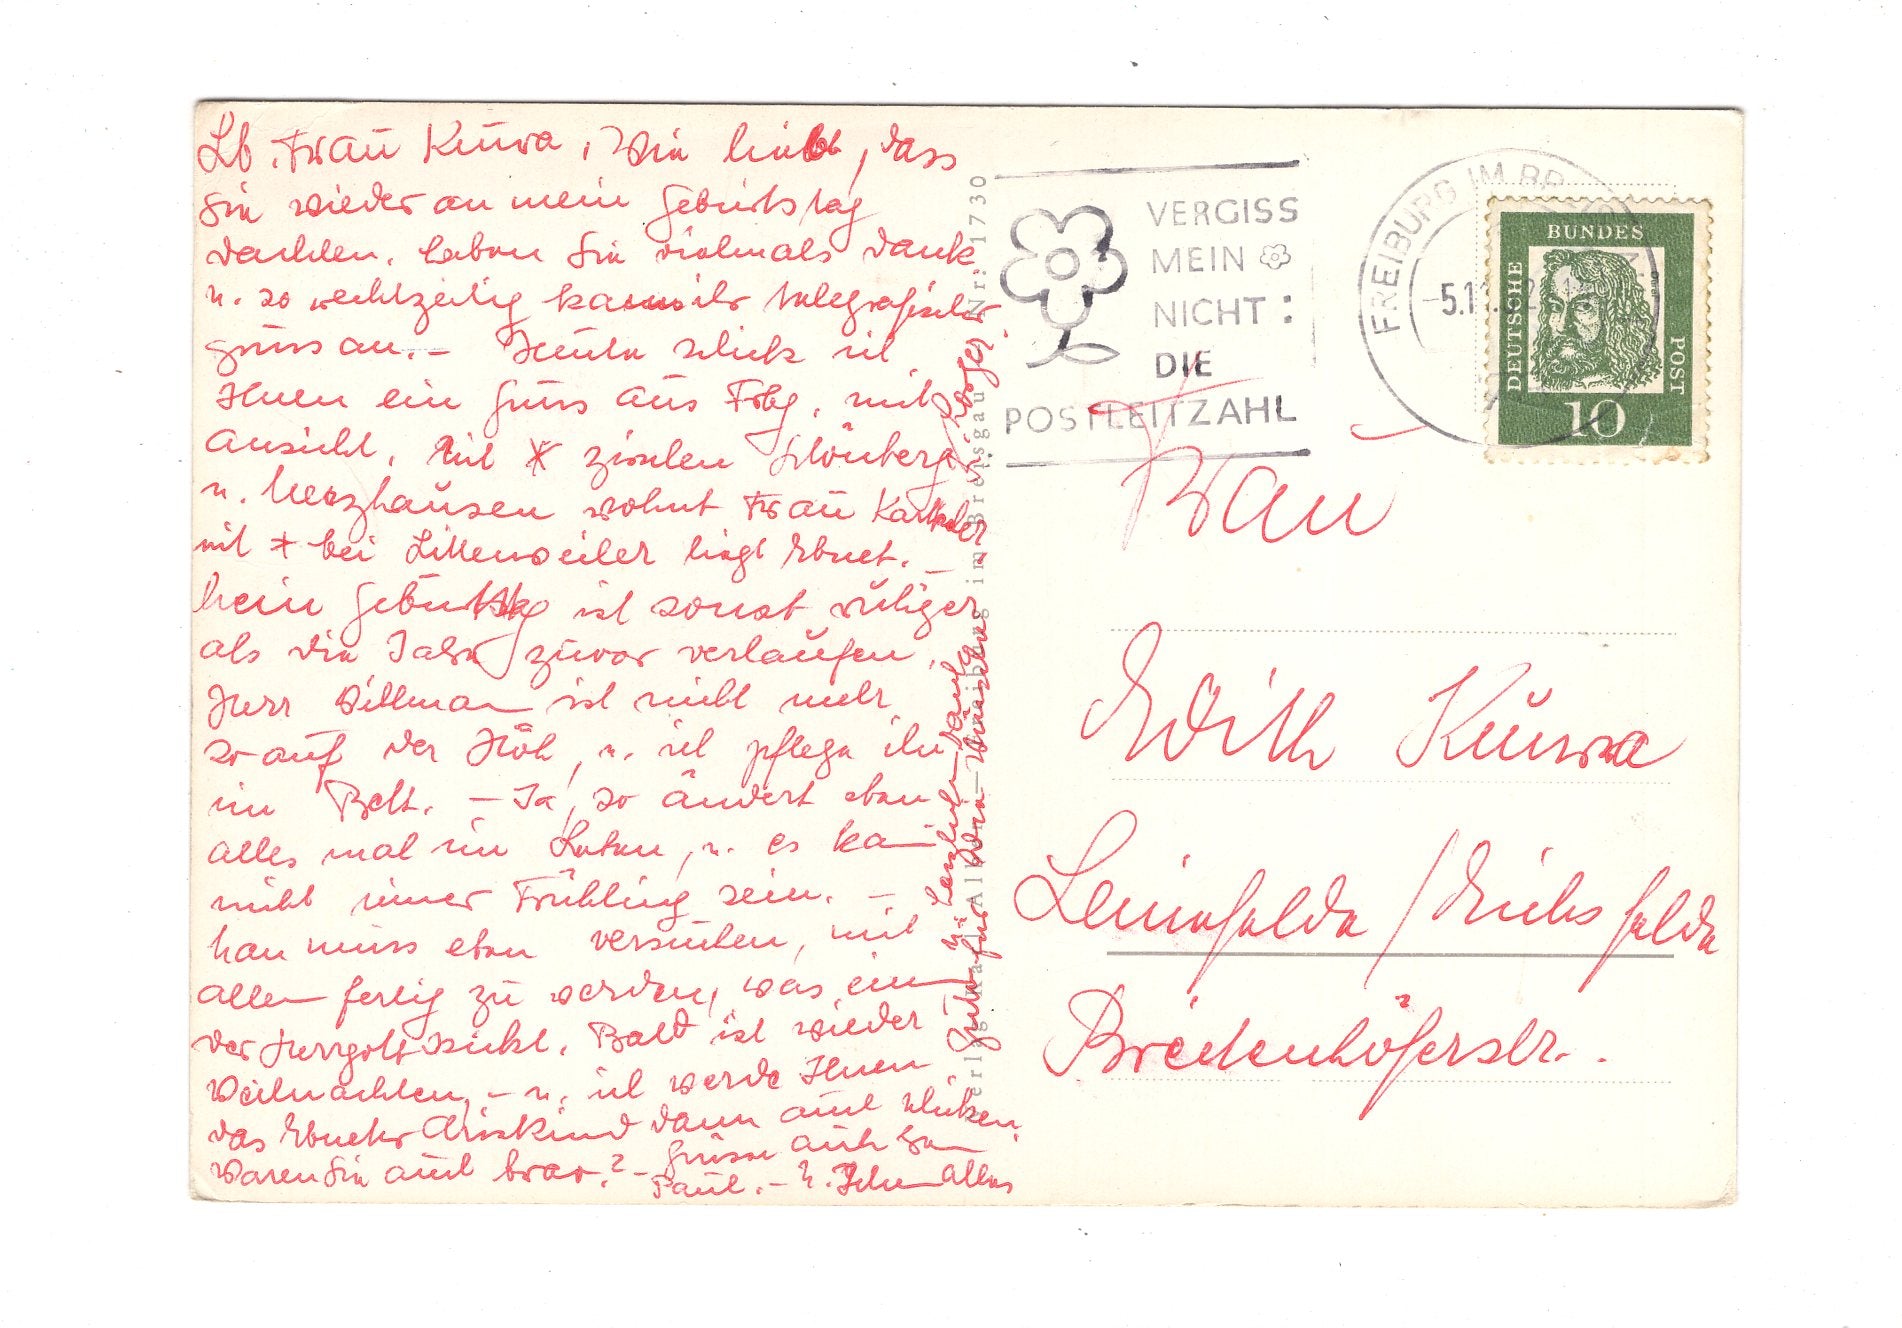 Lb. Frau Kuwa, Wie lieb, dass
Sie wieder an mein Geburtstag
dachten. Haben Sie vielmals Dank
u. so rechtzeitig kam ihr telegrafischer
gruss an. – Heute schick ich
Ihnen ein Gruss aus Frbg, mit
Ansicht, mit x zwischen Schönberg
u. Merzhausen wohnt Frau
mit + bei Littenweiler liegt Ebnet. –
Mein Geburtstag ist sonst ruhiger
als die Jahre zuvor verlaufen,
Herr Willman ist nicht mehr
so auf der Höh, u. ich pflege ihn
im Bett. – Ja, so ändert eben
alles mal im Leben, u. es kan
nicht imer Frühling sein. –
Man muss eben versuchen, mit
allem fertig zu werden, was ein
der Herrgott schickt. Bald ist wieder
Weihnachten, – u. ich werde Ihnen
das Ebneter Christkind dann auch schicken.
Waren Sie auch brav? – Grüsse auch an
Paul. – u. Ihnen alles
Gute für die Wünsche
u. herzlichen Dank
Verlag Karl Alber – Freiburg im Breisgau Nr: 1730
VERGISS
MEIN
NICHT:
DIE
POSTLEITZAHL
FREIBURG IM BR
-5.11.
DEUTSCHE
BUNDES
POST
10
Frau
Edith Kuwa
Leinefelde / Eichsfelde
Breitenhölzerstr.